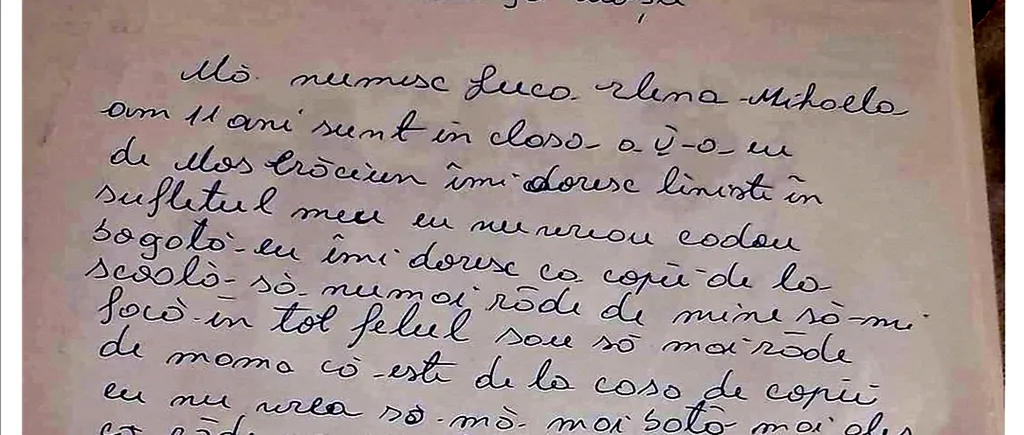 Mă numesc Luca Elena Mihaela
am 11 ani sunt în clasa a V-a eu
de Mos Crăciun îmi doresc liniste în
sufletul meu eu nu vreau cadou
bogată eu îmi doresc ca copii de la
scoală să nu mai râde de mine să-mi
facă în tot felul sau să mai râde
de mama că este de la casa de copii
eu nu vrea să mă mai bată mai ales
că râde